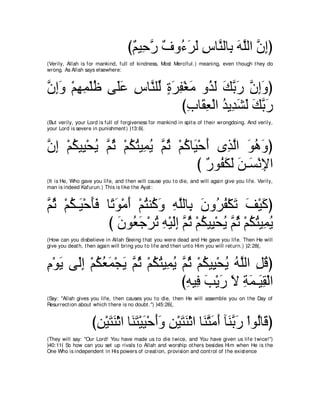 (إِنَّ اللَّهَ بِالنَّاسِ لَرَءُوفٌ رَّحِيمٌ)
(Verily, Allah is for mankind, full of kindness, Most Merciful.) meaning, even though they do wrong. As Allah says elsewhere:
(وَإِنَّ رَبَّكَ لَذُو مَغْفِرَةٍ لِّلنَّاسِ عَلَى ظُلْمِهِمْ وَإِنَّ
رَبَّكَ لَشَدِيدُ الْعِقَابِ)
(But verily, your Lord is full of forgiveness for mankind in spite of their wrongdoing. And verily, your Lord is severe in punishment) [13:6].
(وَهُوَ الَّذِى أَحْيَاكُمْ ثُمَّ يُمِيتُكُمْ ثُمَّ يُحْيِيكُمْ إِنَّ
الإِنْسَـنَ لَكَفُورٌ )
(It is He, Who gave you life, and then will cause you to die, and will again give you life. Verily, man is indeed Kafurun.) This is like the Ayat:
(كَيْفَ تَكْفُرُونَ بِاللَّهِ وَكُنْتُمْ أَمْوَتًا فَأَحْيَـكُمْ ثُمَّ
يُمِيتُكُمْ ثُمَّ يُحْيِيكُمْ ثُمَّ إِلَيْهِ تُرْجَعُونَ )
(How can you disbelieve in Allah Seeing that you were dead and He gave you life. Then He will give you death, then again will bring you to life and then unto Him you will return.) [2:28],
(قُلِ اللَّهُ يُحْيِيكُمْ ثُمَّ يُمِيتُكُمْ ثُمَّ يَجْمَعُكُمْ إِلَى يَوْمِ
الْقِيَـمَةِ لاَ رَيْبَ فِيهِ)
(Say: "Allah gives you life, then causes you to die, then He will assemble you on the Day of Resurrection about which there is no doubt.") [45:26],
(قَالُواْ رَبَّنَآ أَمَتَّنَا اثْنَتَيْنِ وَأَحْيَيْتَنَا اثْنَتَيْنِ)
(They will say: "Our Lord! You have made us to die twice, and You have given us life twice!") [40:11] So how can you set up rivals to Allah and worship others besides Him when He is the One Who is independent in His powers of creation, provision and control of the existence